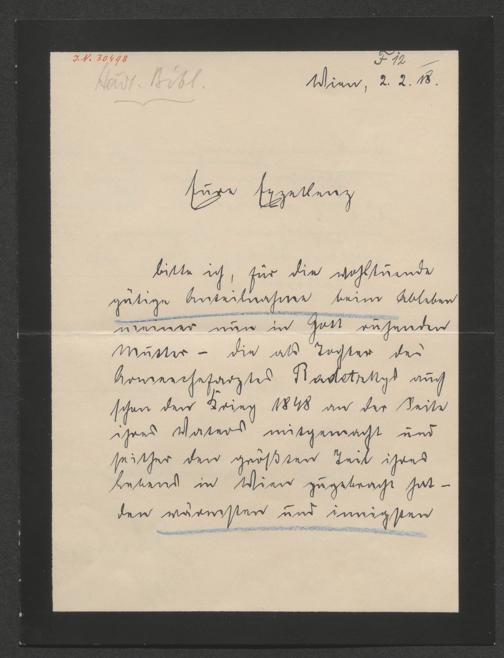 I.N. 30498
F 12
Städt. Bibl.
Wien, 2. 2. 18.
Eure Exzellenz
bitte ich, für die wohltuende
gütige Anteilnahme beim Ableben
meiner nun in Gott ruhenden
Mutter – die als Tochter des
Armeechefarztes Radetzkys auch
schon den Krieg 1848 an der Seite
ihres Vaters mitgemacht und
seither den größten Teil ihres
Lebens in Wien zugebracht hat –
den wärmsten und innigsten